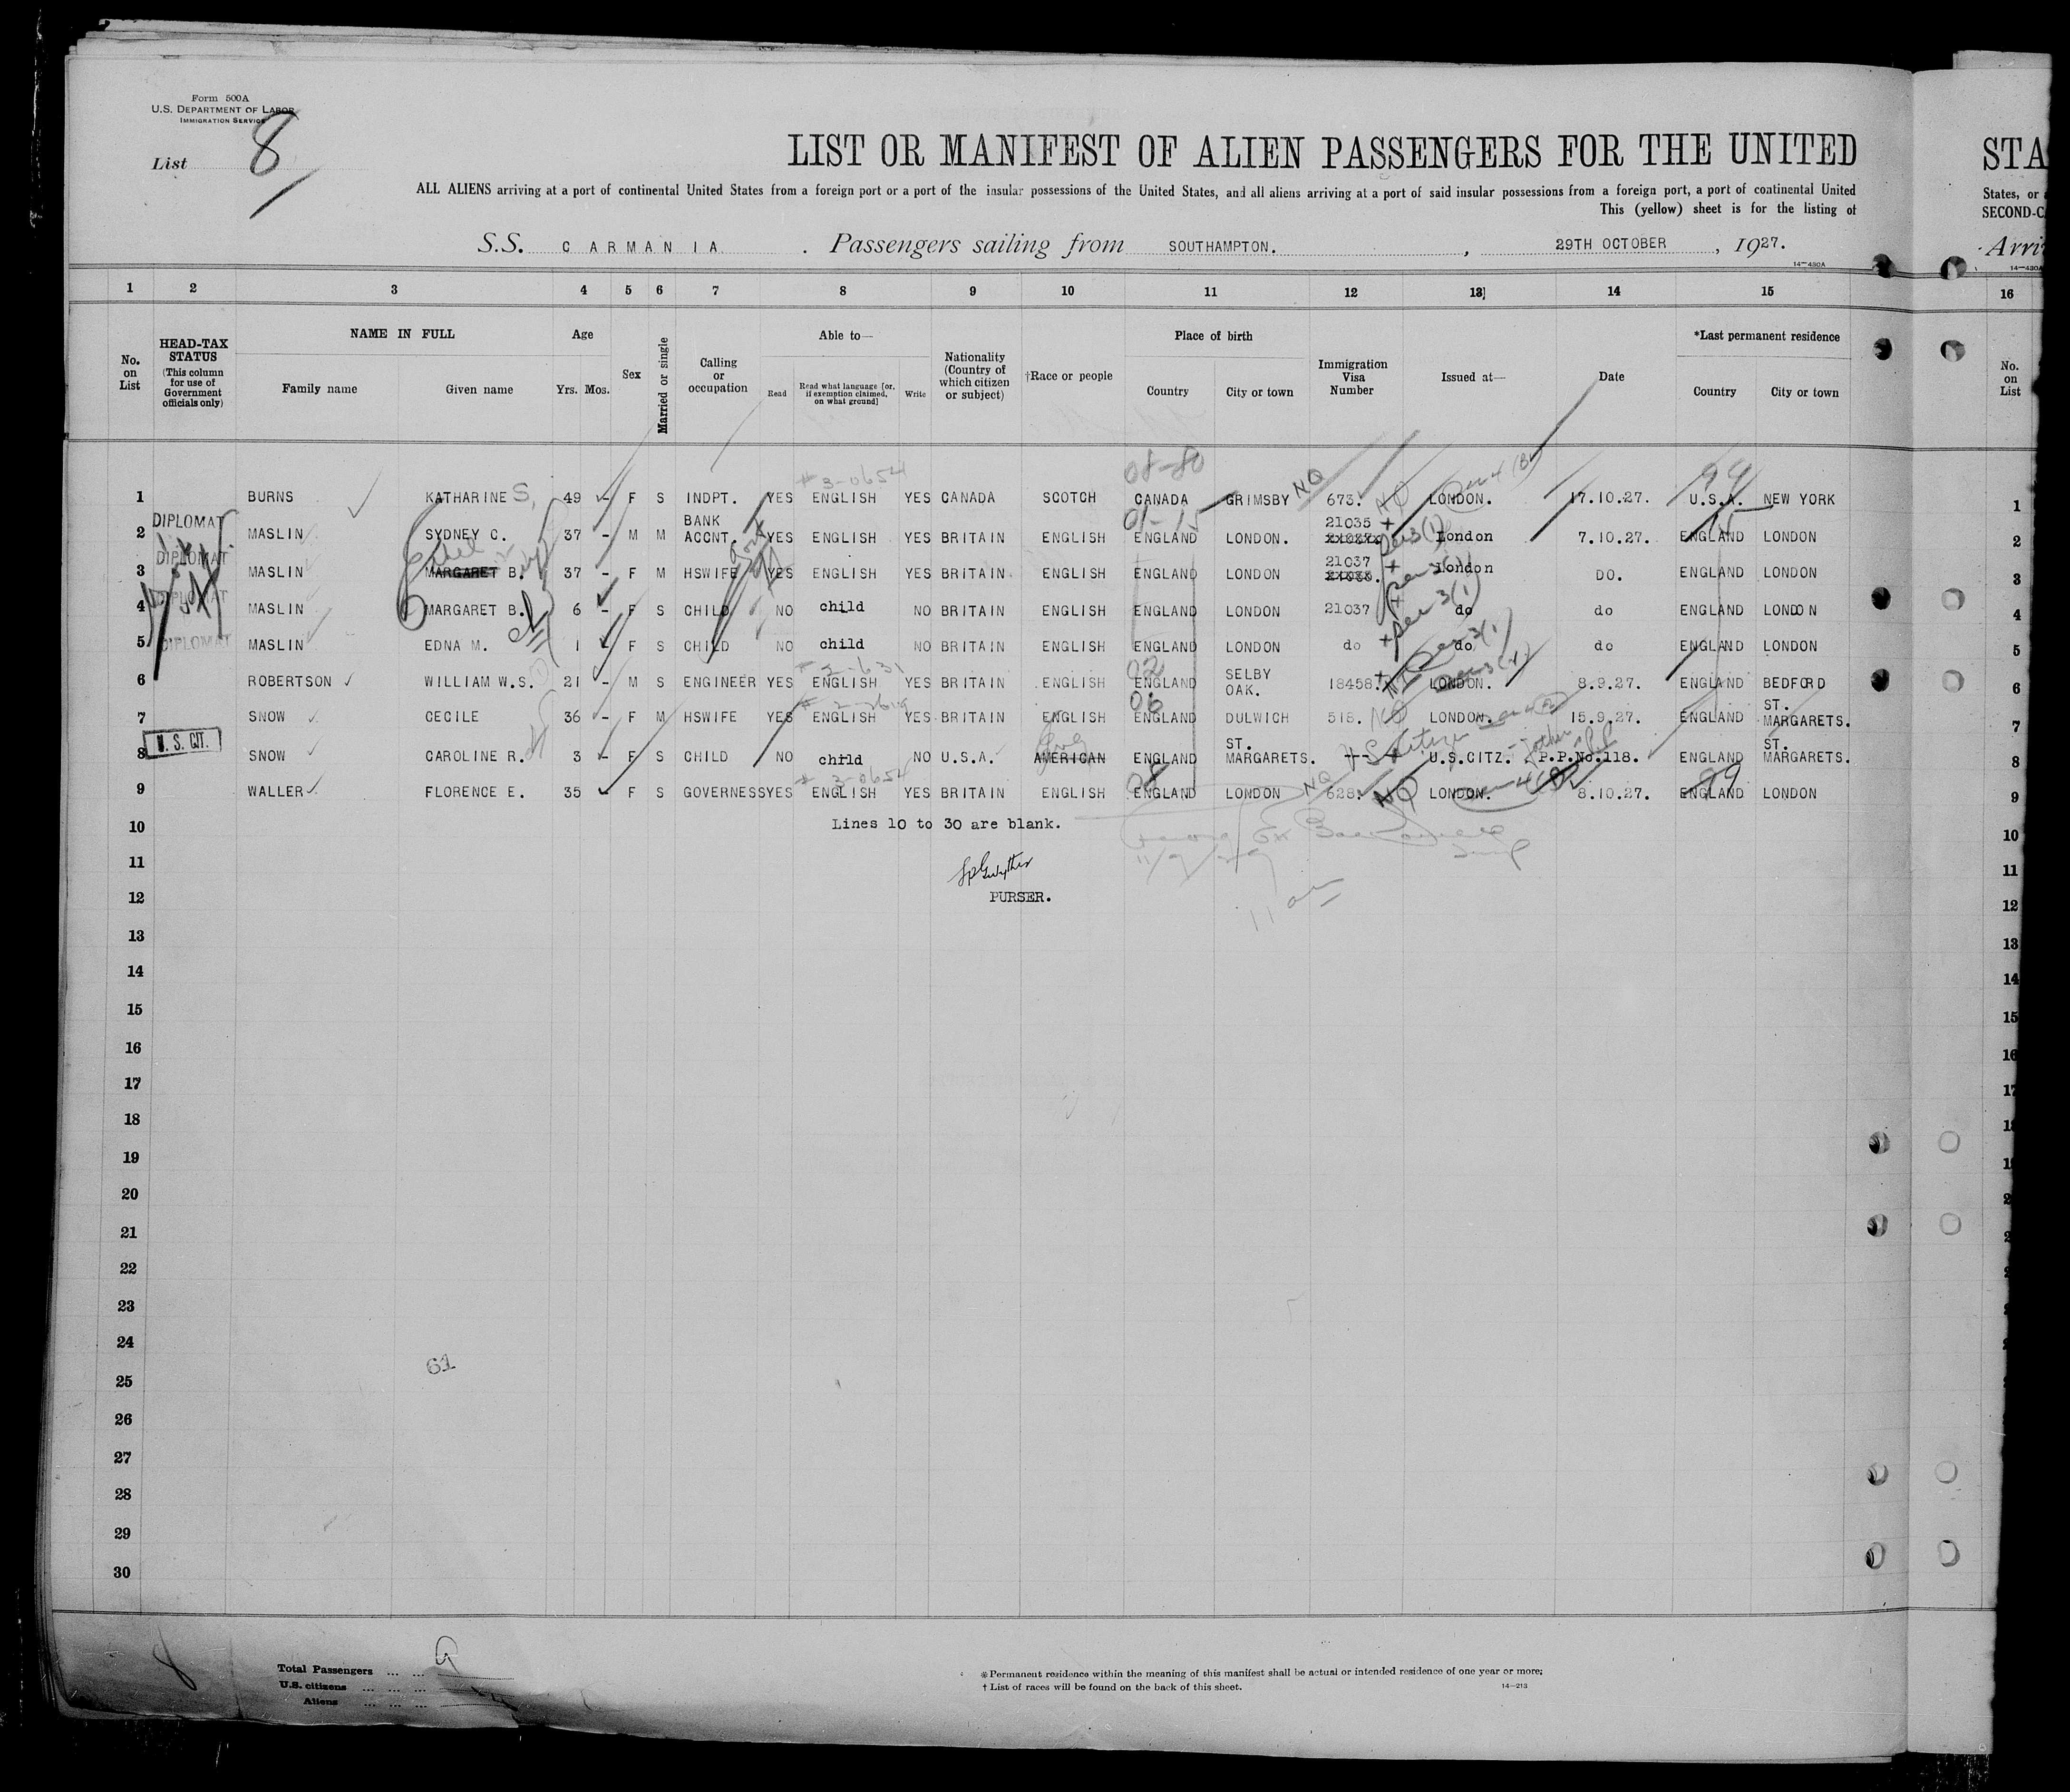 Form 500A
U.S. DEPARTMENT OF LABOR
IMMIGRATION SERVICE
List 8
LIST OR MANIFEST OF ALIEN PASSENGERS FOR THE UNITED
STA
ALL ALIENS arriving at a port of continental United States from a foreign port or a port of the insular possessions of the United States, and all aliens arriving at a port of said insular possessions from a foreign port, a port of continental United
States, or
This (yellow) sheet is for the listing of
SECOND-C
S.S. CARMANIA. Passengers sailing from SOUTHAMPTON. , 29TH OCTOBER , 1927.
Arri
14—430A
14—430A
1 2 3 4 5 6 7 8 9 10 11 12 13] 14 15 16
No. on List
HEAD-TAX STATUS (This column for use of Government officials only)
NAME IN FULL
Family name Given name
Age
Yrs. Mos.
Sex
Married or single
Calling or occupation
Able to—
Read
Read what language [or, if exemption claimed, on what ground]
Write
Nationality (Country of which citizen or subject)
†Race or people
Place of birth
Country City or town
Immigration Visa Number
Issued at—
Date
*Last permanent residence
Country City or town
No. on List
08-80 99
# 3-0654
1 BURNS KATHARINE S. 49 - F S INDPT. YES ENGLISH YES CANADA SCOTCH CANADA GRIMSBY NQ 673. NQ LONDON. 17.10.27. U.S.A. NEW YORK 1
DIPLOMAT 01-15
2 MASLIN SYDNEY C. 37 - M M BANK ACCNT. YES ENGLISH YES BRITAIN ENGLISH ENGLAND LONDON. 21035 London 7.10.27. ENGLAND LONDON 2
DIPLOMAT
3 MASLIN MARGARET B. 37 - F M HSWIFE YES ENGLISH YES BRITAIN ENGLISH ENGLAND LONDON 21037 London DO. ENGLAND LONDON 3
DIPLOMAT
4 MASLIN MARGARET B. 6 - F S CHILD NO child NO BRITAIN ENGLISH ENGLAND LONDON 21037 do do ENGLAND LONDON 4
5 DIPLOMAT MASLIN EDNA M. 1 - F S CHILD NO child NO BRITAIN ENGLISH ENGLAND LONDON do do do ENGLAND LONDON 5
02
6 ROBERTSON WILLIAM W.S. 21 - M S ENGINEER YES ENGLISH YES BRITAIN ENGLISH ENGLAND SELBY OAK. 18458. LONDON. 8.9.27. ENGLAND BEDFORD 6
06
7 SNOW CECILE 36 - F M HSWIFE YES ENGLISH YES BRITAIN ENGLISH ENGLAND DULWICH 515. NQ LONDON. 15.9.27. ENGLAND ST. MARGARETS. 7
U. S. CIT.
8 SNOW CAROLINE R. 3 - F S CHILD NO child NO U.S.A. AMERICAN ENGLAND ST. MARGARETS. --- U.S.CITZ. P.P.No.118. ENGLAND ST. MARGARETS. 8
# 3-0654
9 WALLER FLORENCE E. 35 - F S GOVERNESS YES ENGLISH YES BRITAIN ENGLISH ENGLAND LONDON NQ 628. NQ LONDON. 8.10.27. ENGLAND LONDON 9
99
10 Lines 10 to 30 are blank. 10
11 11
12 PURSER. 12
13 13
14 14
15 15
16 16
17 17
18
19
20
21
22
23
24
61
25
26
27
28
29
30
Total Passengers ... ... 9
U.S. citizens ... ... ...
Aliens ... ... ...
*Permanent residence within the meaning of this manifest shall be actual or intended residence of one year or more;
† List of races will be found on the back of this sheet.
14—213